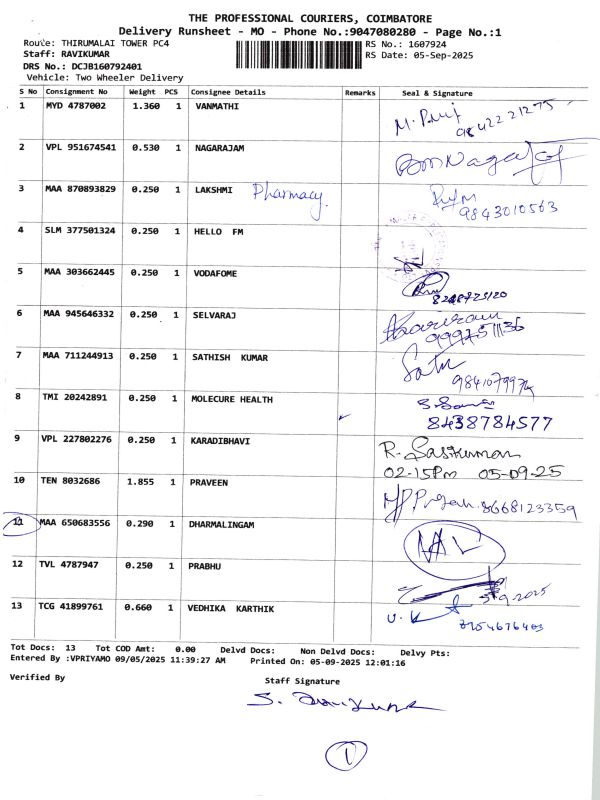 THE PROFESSIONAL COURIERS, COIMBATORE
Delivery Runsheet - MO - Phone No.:9047080280 - Page No.:1
Route: THIRUMALAI TOWER PC4 RS No.: 1607924
Staff: RAVIKUMAR RS Date: 05-Sep-2025
DRS No.: DCJB160792401
Vehicle: Two Wheeler Delivery
S No Consignment No Weight PCS Consignee Details Remarks Seal & Signature
1 MYD 4787002 1.360 1 VANMATHI
9842221275
2 VPL 951674541 0.530 1 NAGARAJAM
3 MAA 870893829 0.250 1 LAKSHMI Pharmacy
9843010563
4 SLM 377501324 0.250 1 HELLO FM
5 MAA 303662445 0.250 1 VODAFOME
6 MAA 945646332 0.250 1 SELVARAJ
7 MAA 711244913 0.250 1 SATHISH KUMAR
8 TMI 20242891 0.250 1 MOLECURE HEALTH
8438784577
9 VPL 227802276 0.250 1 KARADIBHAVI
R. Sasikumar
02-15Pm 05-09-25
10 TEN 8032686 1.855 1 PRAVEEN
8668123359
11 MAA 650683556 0.290 1 DHARMALINGAM
12 TVL 4787947 0.250 1 PRABHU
5-9-2025
13 TCG 41899761 0.660 1 VEDHIKA KARTHIK
Tot Docs: 13 Tot COD Amt: 0.00 Delvd Docs: Non Delvd Docs: Delvy Pts:
Entered By :VPRIYAMO 09/05/2025 11:39:27 AM Printed On: 05-09-2025 12:01:16
Verified By Staff Signature
1